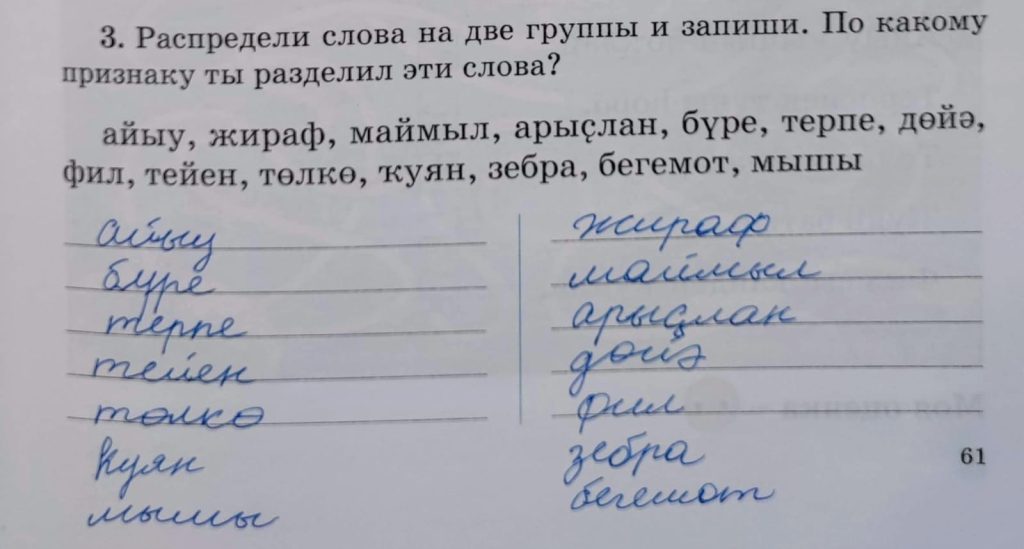 3. Распредели слова на две группы и запиши. По какому
признаку ты разделил эти слова?
айыу, жираф, маймыл, арыҫлан, бүре, терпе, дөйә,
фил, тейен, төлкө, ҡуян, зебра, бегемот, мышы
айыу
бүре
терпе
тейен
төлкө
ҡуян
мышы
жираф
маймыл
арыҫлан
дөйә
фил
зебра
бегемот
61